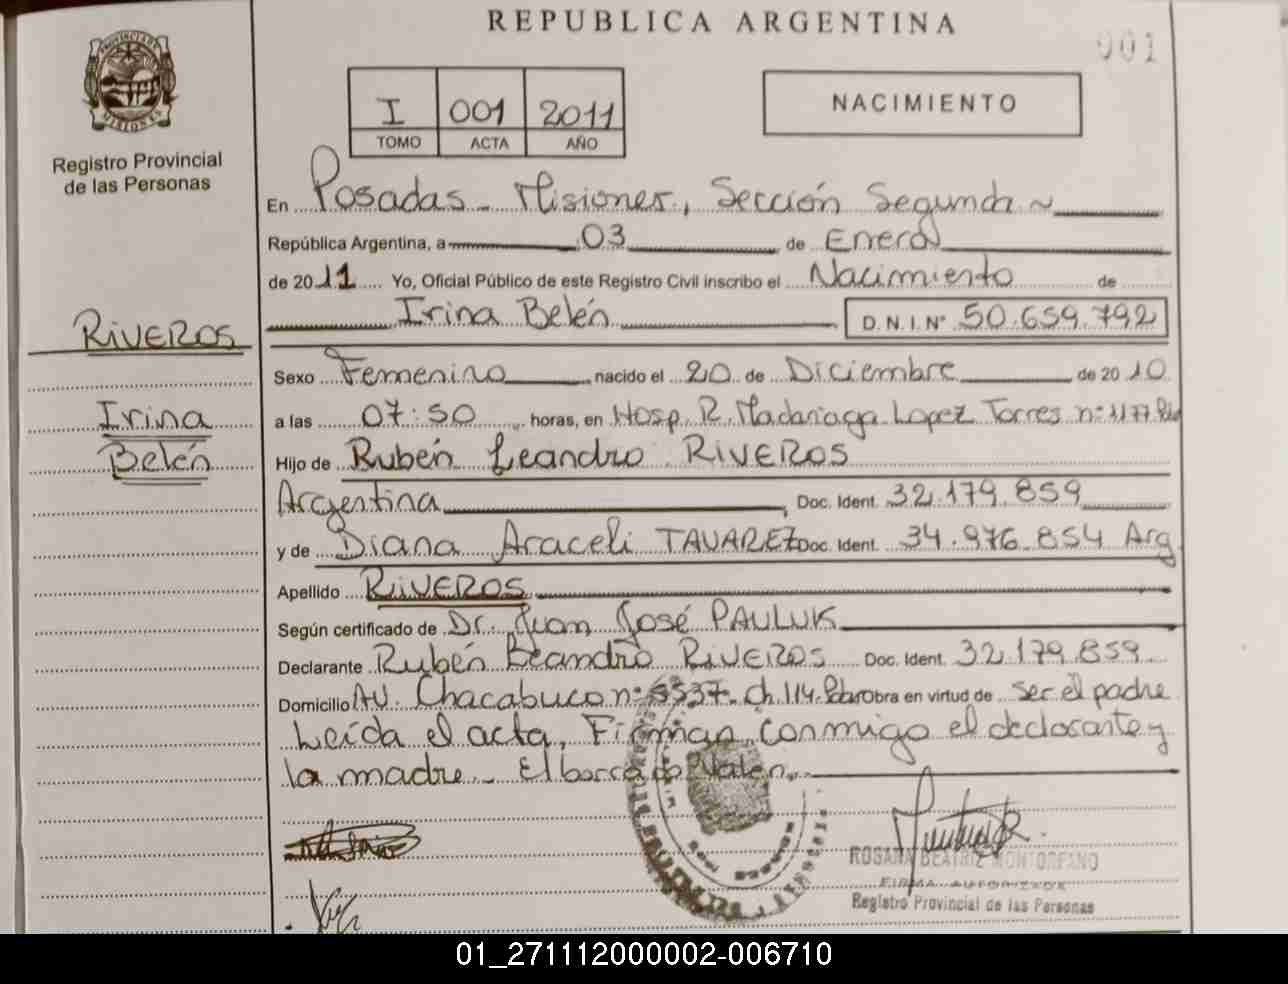 REPUBLICA ARGENTINA
001
PROVINCIA DE MISIONES
Registro Provincial
de las Personas
I 001 2011
TOMO ACTA AÑO
NACIMIENTO
En Posadas - Misiones, Sección Segunda
República Argentina, a 03 de Enero
de 2011 Yo, Oficial Público de este Registro Civil inscribo el Nacimiento de
Irina Belén D.N.I. Nº 50.659.792
RIVEROS
Irina
Belén
Sexo Femenino nacido el 20 de Diciembre de 2010
a las 07:50 horas, en Hosp. R. Madariaga Lopez Torres nº 1177
Hijo de Rubén Leandro RIVEROS
Argentina Doc. Ident. 32.179.859
y de Diana Araceli TAVAREZ Doc. Ident. 34.976.854 Arg
Apellido RIVEROS
Según certificado de Dr. Juan José PAULUK
Declarante Rubén Leandro RIVEROS Doc. Ident. 32.179.859
Domicilio AV. Chacabuco nº 5537 - Ch. 114 - Obra en virtud de ser el padre
Leída el acta, Firman conmigo el declarante y
la madre - El borrado Valen.
ROSANA BEATRIZ MONTORFANO
FIRMA AUTORIZADA
Registro Provincial de las Personas
01_271112000002-006710